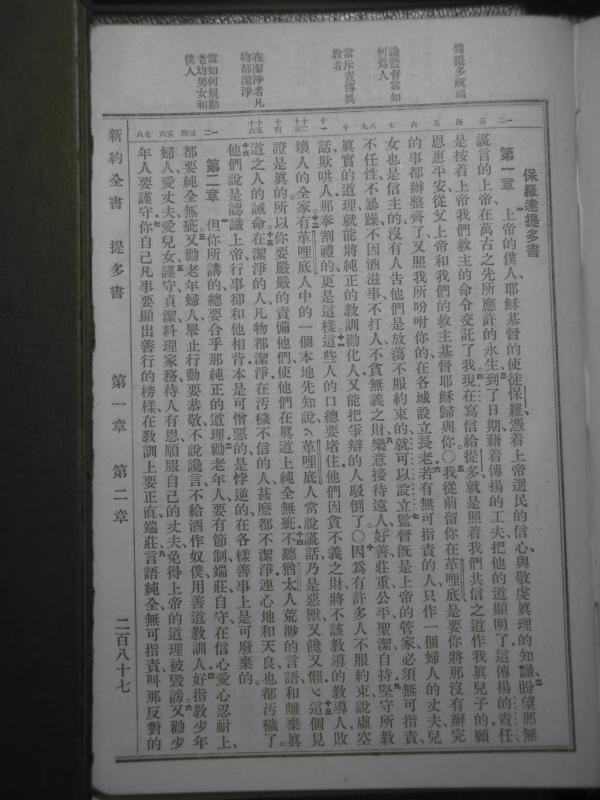 爲提多祝福
論監督當如
何爲人
當斥責傳異
敎者
在潔淨者凡
物都潔淨
當如何規勸
老幼男女和
僕人
保羅達提多書
第一章 上帝的僕人耶穌基督的使徒保羅憑着上帝選民的信心、與敬虔眞理的知識、盼望那無
謊言的上帝在萬古之先所應許的永生、到了日期、藉着傳揚的工夫把他的道顯明了、這傳揚的責任
是按着上帝我們救主的命令交託了我、現在寫信給提多就是照着我們共信之道作我眞兒子的願
恩惠平安、從父上帝和我們的救主基督耶穌歸與你。〇我從前留你在革哩底、是要你將那沒有辦完
的事都辦整齊了、又照我所吩咐你的、在各城設立長老、若有無可指責的人、只作一個婦人的丈夫、兒
女也是信主的、沒有人告他們是放蕩不服約束的、就可以設立、監督旣是上帝的管家、必須無可指責、
不任性、不暴躁、不因酒滋事、不打人、不貪無義之財、樂意接待遠人、好善、莊重、公平、聖潔、自持、堅守所敎
眞實的道理、就能將純正的敎訓勸化人、又能把爭辯的人駁倒了。〇因爲有許多人不服約束、說虛空
話欺哄人、那奉割禮的、更是這樣、這些人的口總要堵住、他們因貪不義之財、將不該敎導的敎導人、敗
壞人的全家、有革哩底人中的一個本地先知說、革哩底人常說謊話、乃是惡獸、又饞又懶、這個見
證是眞的、所以你要嚴嚴的責備他們、使他們在眞道上純全無疵、不聽猶太人荒渺的言語、和離棄眞
道之人的誡命、在潔淨的人、凡物都潔淨、在汚穢不信的人、甚麼都不潔淨、連心地和天良、也都汚穢了、
他們說是認識上帝、行事卻和他相背、本是可憎惡的、是悖逆的、在各樣善事上是可廢棄的。
第二章 但你所講的、總要合乎那純正的道理、勸老年人要有節制、端莊、自守、在信心愛心忍耐上、
都要純全無疵、又勸老年婦人、舉止行動要恭敬、不說讒言、不給酒作奴僕、用善道敎訓人、好指敎少年
婦人、愛丈夫、愛兒女、謹守、貞潔、料理家務、待人有恩、順服自己的丈夫、免得上帝的道理被毀謗、又勸少
年人要謹守、你自己凡事要顯出善行的榜樣、在敎訓上要正直端莊、言語純全無可指責、叫那反對的
新約全書 提多書 第一章 第二章 二百八十七